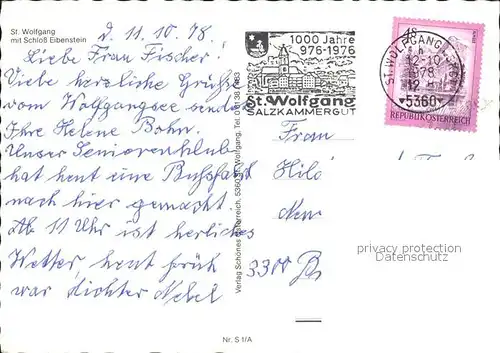 St. Wolfgang
mit Schloß Eibenstein
d. 11. 10. 78.
Liebe Frau Fischer!
Viele herzliche Grüße
vom Wolfgangsee sendet
Ihre Helene Bohn.
Unser Seniorenklub
hat heut eine Busfahrt
nach hier gemacht
Ab 11 Uhr ist herliches
Wetter, heut früh
war dichter Nebel
Verlag Schönes Österreich, 5360 St. Wolfgang, Tel.
1000 Jahre
976-1976
St. Wolfgang
SALZKAMMERGUT
ST. WOLFGANG
12.-10.
1978
5360
REPUBLIK ÖSTERREICH
Frau
3300
privacy protection
Datenschutz
Nr. S 1/A